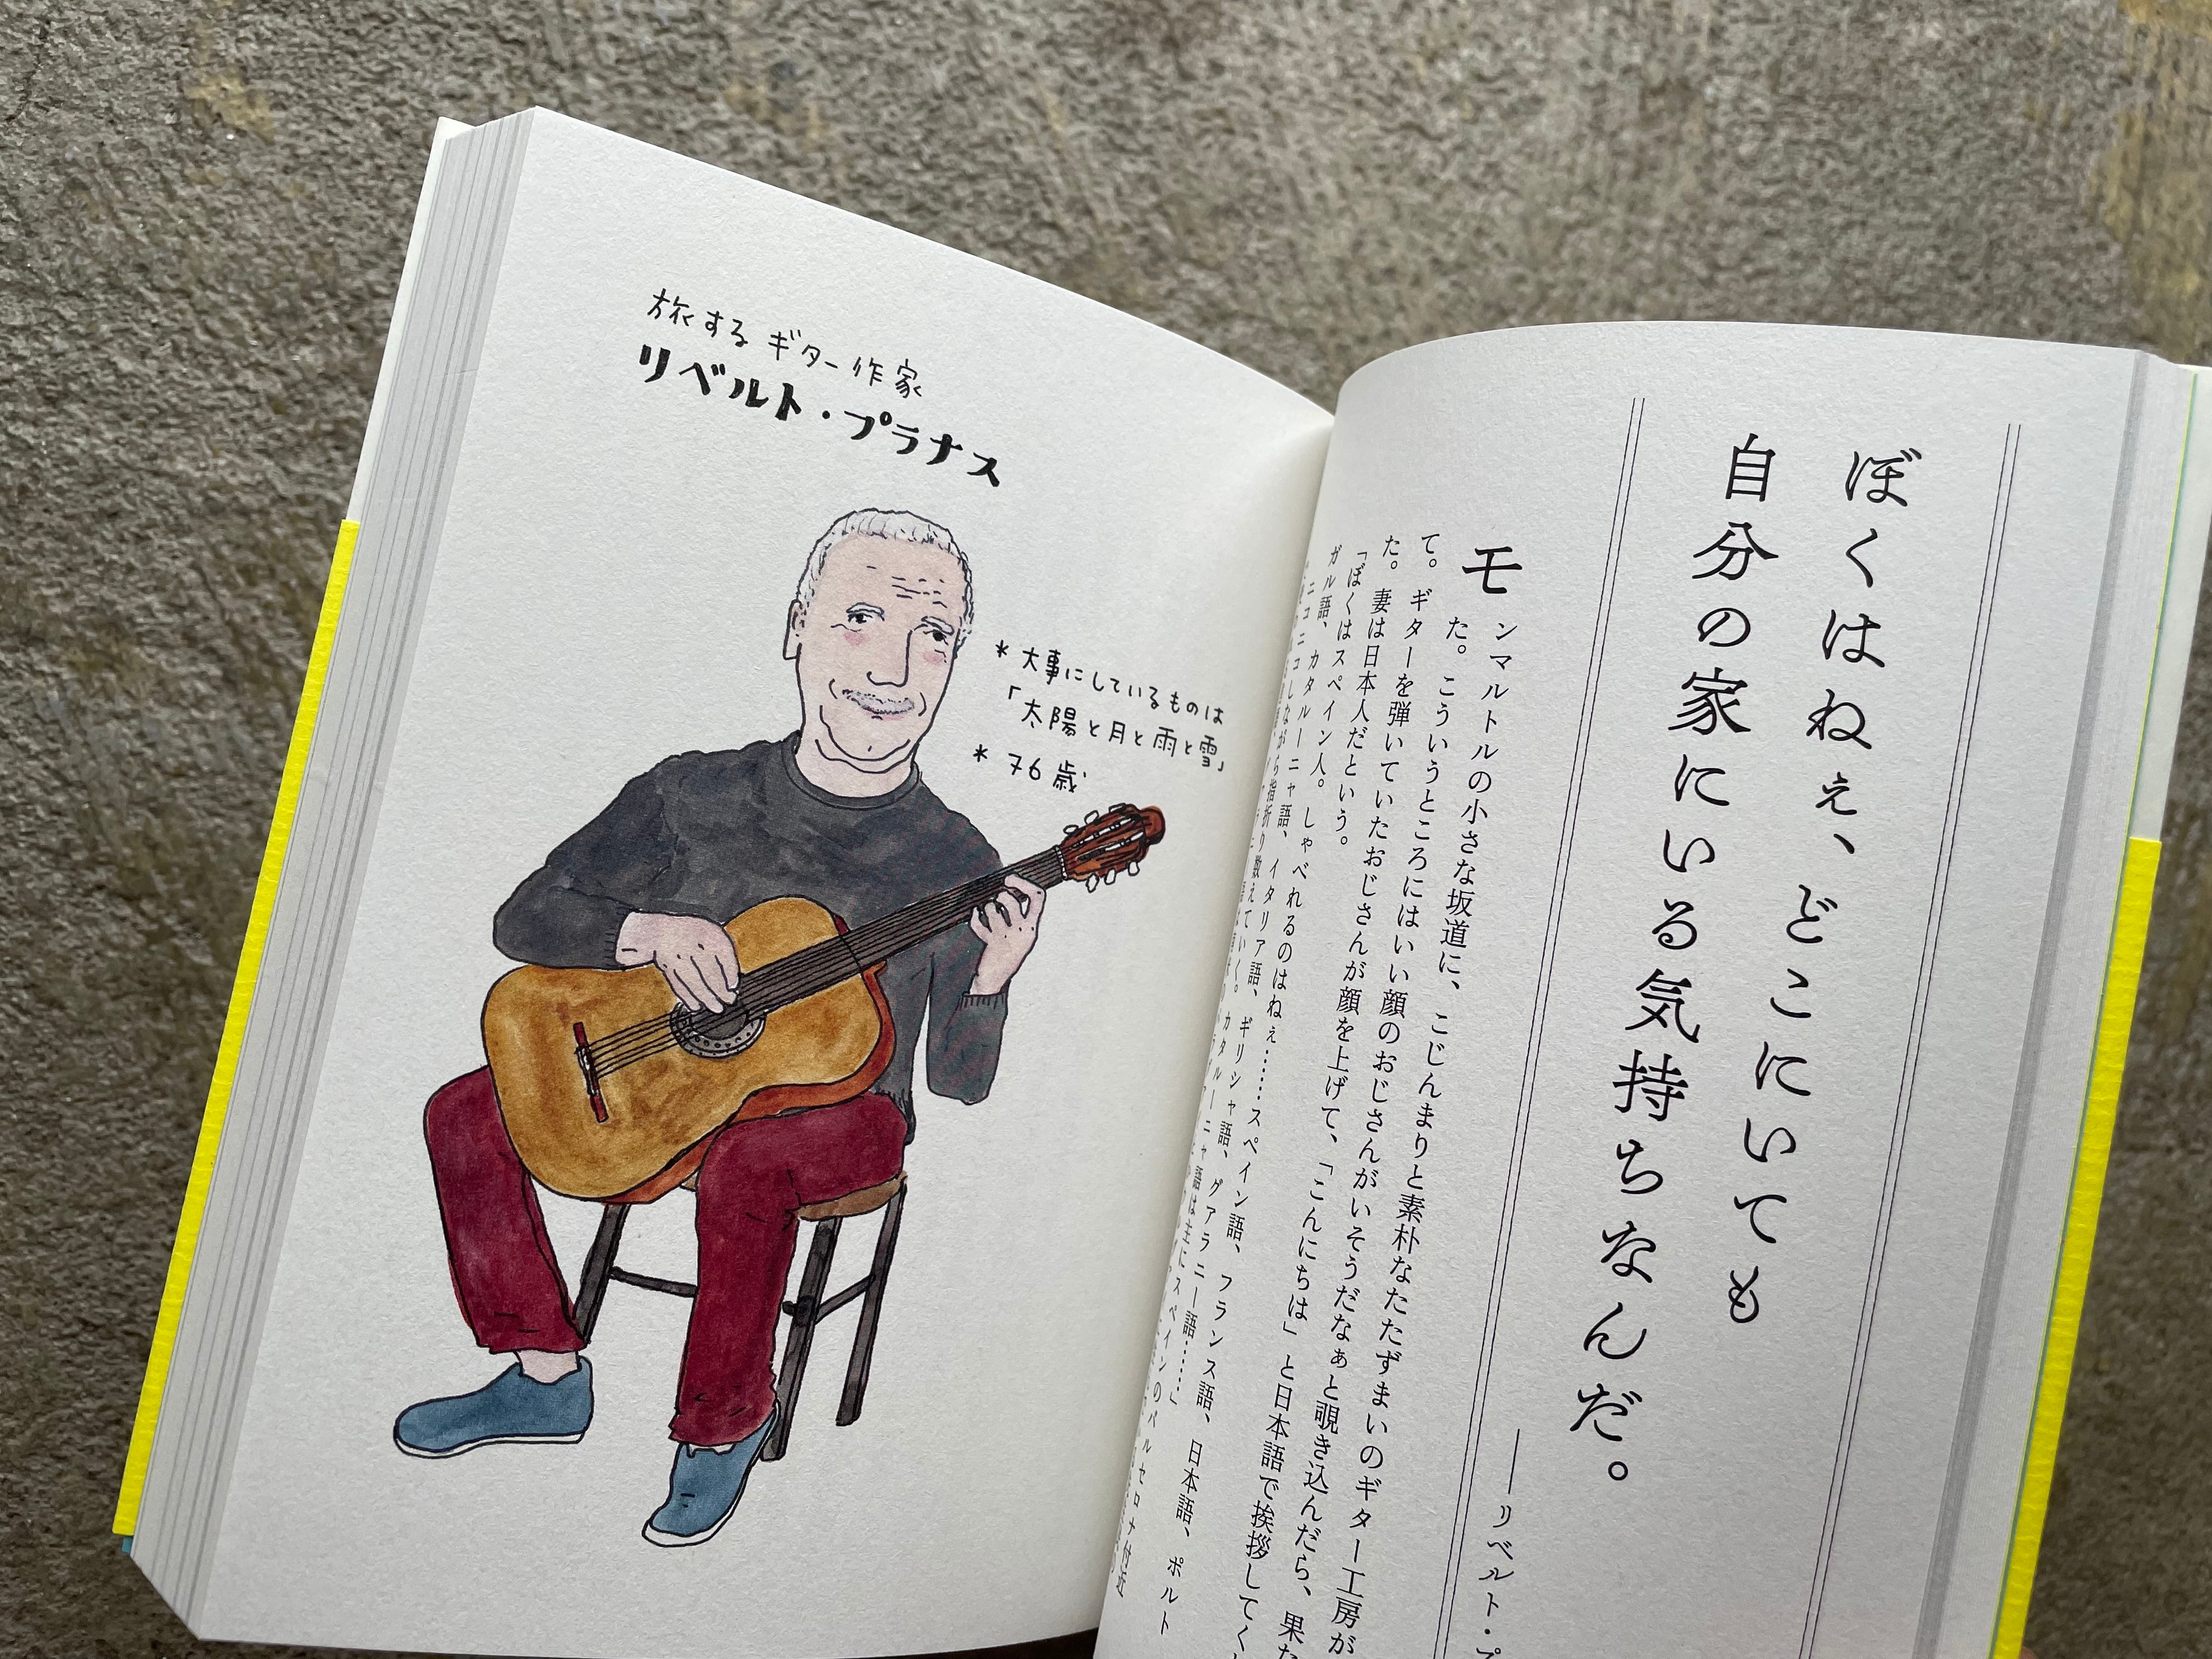 旅するギター作家
リベルト・プラナス
＊大事にしているものは
「太陽と月と雨と雪」
＊76歳
ぼくはねぇ、どこにいても
自分の家にいる気持ちなんだ。
――リベルト・プ
モンマルトルの小さな坂道に、こじんまりと素朴なたたずまいのギター工房が
た。こういうところにはいい顔のおじさんがいそうだなぁと覗き込んだら、果た
て。ギターを弾いていたおじさんが顔を上げて、「こんにちは」と日本語で挨拶してく
た。妻は日本人だという。
「ぼくはスペイン人。しゃべれるのはねぇ……スペイン語、フランス語、日本語、ポルト
ガル語、カタルーニャ語、イタリア語、ギリシャ語、グァラニー語……」
ニコニコしながら指折り数えていく。カタルーニャ語は主にスペインのバルセロナ付近